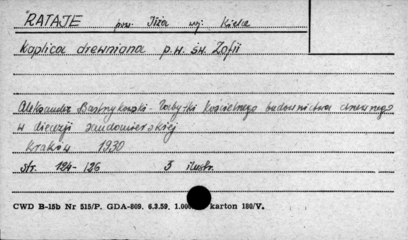 "RATAJE pow. Iłża woj. Kielce
kaplica drewniana p.w. św. Zofii
Aleksander Bastrzykowski - Zabytki kościelnego budownictwa drewnego
w diecezji sandomierskiej
Kraków 1930
str. 124-126 3 ilustr.
CWD B-15b Nr 515/P. GDA-809. 6.3.59. 1.000 karton 180/V.